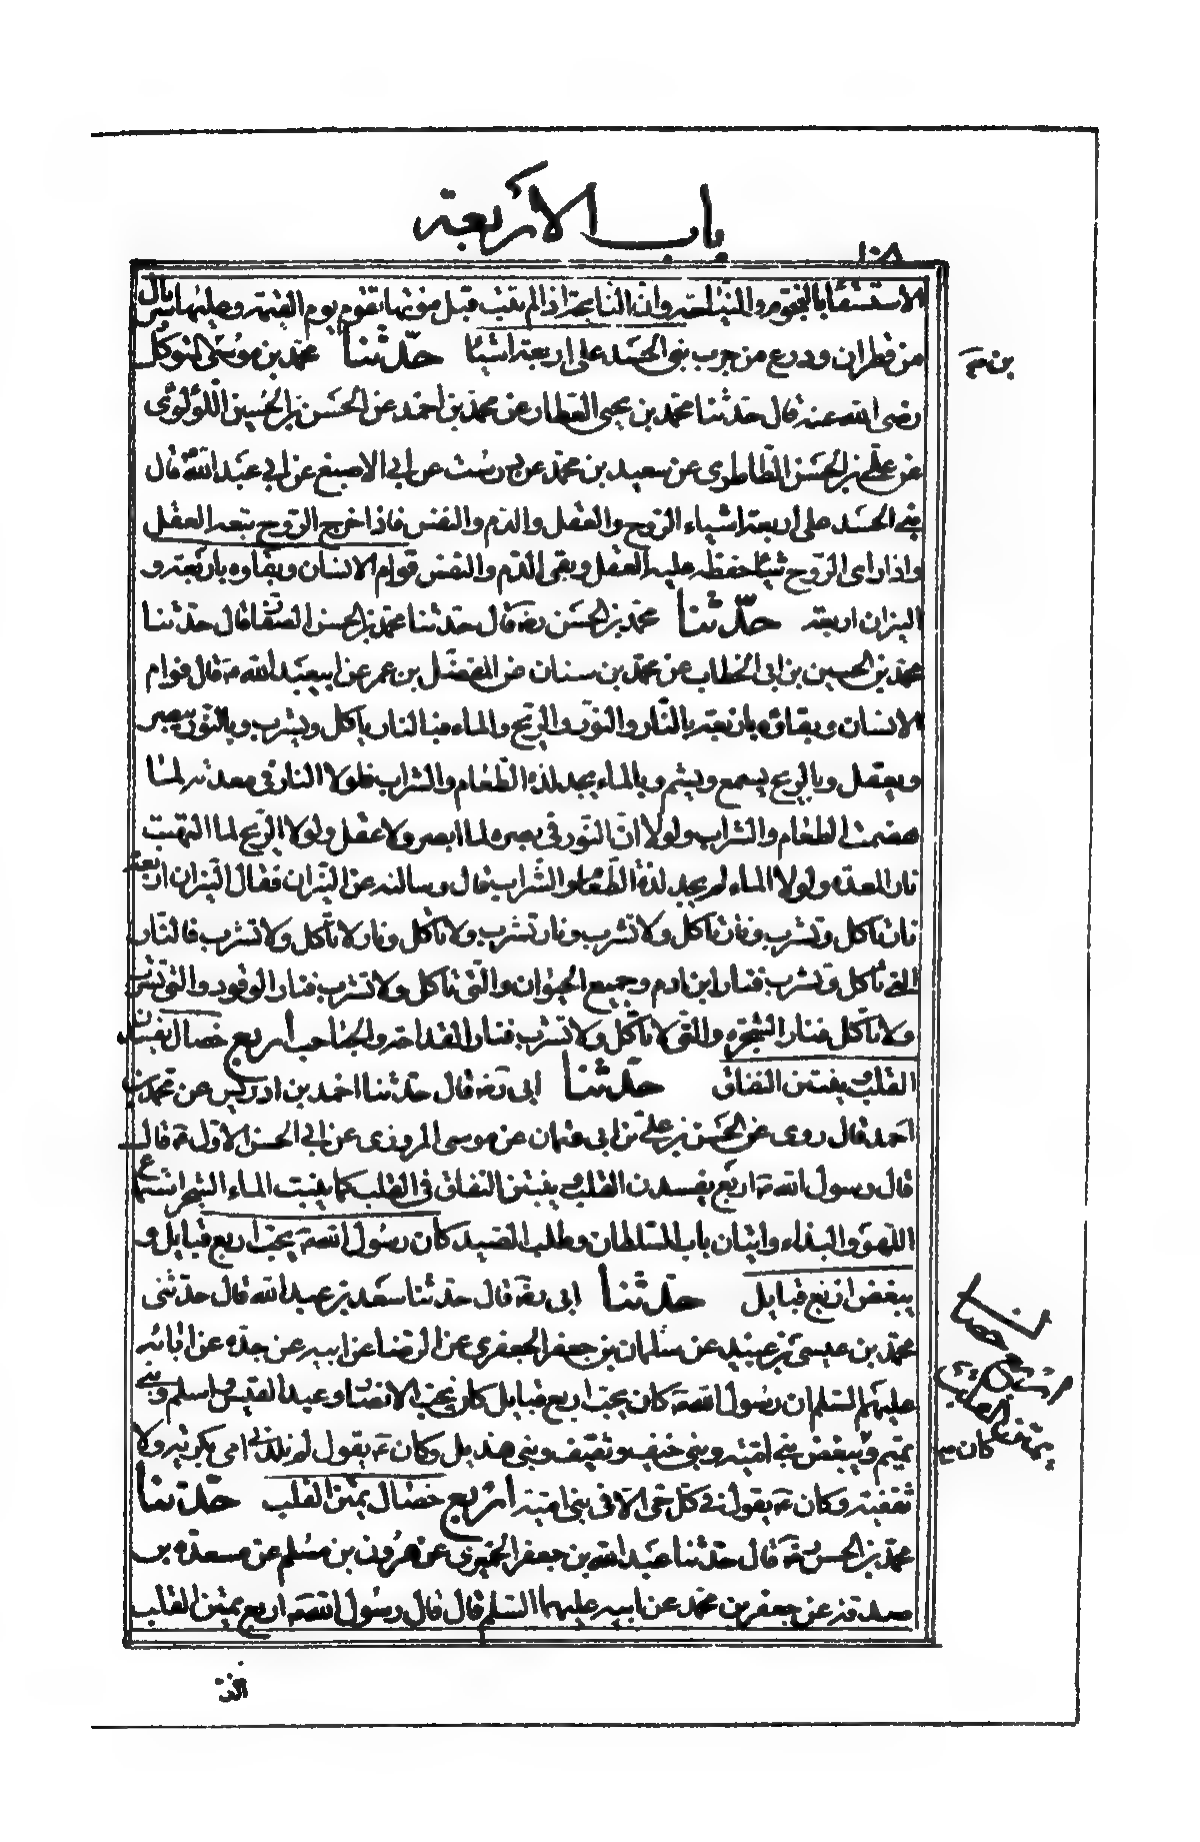 باب الأربعة
١٠٨
الاستسقاء بالنجوم والنياحة وان النايحة اذا لم تتب قبل موتها تقوم يوم القيمة وعليها سربال
من قطران ودرع من جرب بنى الجسد على اربعة اشيا حدّثنا محمد بن موسى المتوكل
رضى الله عنه قال حدثنا محمد بن يحيى العطار عن محمد بن أحمد عن الحسن بن الحسين اللؤلوئى
عن على بن الحسن الطاطرى عن سعيد بن محمد عن درست عن ابى الاصبغ عن ابى عبد الله قال
بنى الجسد على أربعة اشياء الروح والعقل والدم والنفس فاذا خرج الروح تبعه العقل
واذا رأى الروح شيئا حفظه عليه العقل وبقى الدم والنفس قوام الانسان وبقاوه باربعة و
النيران اربعة حدّثنا محمد بن الحسن رضه قال حدثنا محمد بن الحسن الصفار قال حدثنا
محمد بن الحسين بن ابى الخطاب عن محمد بن سنان عن المفضل بن عمر عن ابيعبد الله ع قال قوام
الانسان وبقاؤه باربعة بالنار والنور والريح والماء فبالنار ياكل ويشرب وبالنور يبصر
ويعقل وبالريح يسمع ويشم وبالماء يجد لذة الطعام والشراب فلولا النار فى معدته لما
هضمت الطعام والشراب ولولا انّ النور فى بصره لما ابصر ولا عقل ولولا الريح لما التهبت
نار المعدة ولولا الماء لم يجد لذة الطعام والشراب قال وسالته عن النيران فقال النيران اربعة
نار تاكل وتشرب ونار تاكل ولا تشرب ونار تشرب ولا تأكل ونار لا تأكل ولا تشرب فالنار
التى تأكل وتشرب فنار ابن ادم وجميع الحيوان والتى تاكل ولا تشرب فنار الوقود والتى تشرب
ولا تأكل فنار الشجرة والتى لا تأكل ولا تشرب فنار القداحة والحباحب أربع خصال يفسدن
القلب وينبتن النفاق حدّثنا ابى رضه قال حدثنا احمد بن ادريس عن محمد بن
احمد قال روى عن الحسن بن على بن ابى عثمان عن موسى المروزى عن ابى الحسن الاول ع قال
قال رسول الله ص اربع يفسدن القلب وينبتن النفاق فى القلب كما ينبت الماء الشجر استماع
اللهو والبذاء واتيان باب السلطان وطلب الصيد كان رسول الله ص يحب اربع قبايل و
يبغض اربع قبايل حدّثنا ابى رضه قال حدثنا سعد بن عبد الله قال حدثنى
محمد بن عيسى بن عبيد عن سليمان بن جعفر الجعفرى عن الرضا عن ابيه عن جده عن ابائه
عليهم السلم ان رسول الله ص كان يحب اربع قبايل كان يحب الانصار وعبد القيس واسلم وبنى
تميم ويبغض بنى امية وبنى حنيف وثقيف وبنى هذيل وكان ع يقول لم تلدنى امى بكرية ولا
ثقفية وكان ع يقول فى كل حى الا فى بنى امية أربع خصال يمتن القلب حدّثنا
محمد بن الحسن رضه قال حدثنا عبد الله بن جعفر الحميرى عن هرون بن مسلم عن مسعدة بن
صدقة عن جعفر بن محمد عن ابيه عليهما السلم قال قال رسول الله ص اربع يمتن القلب
الذنب